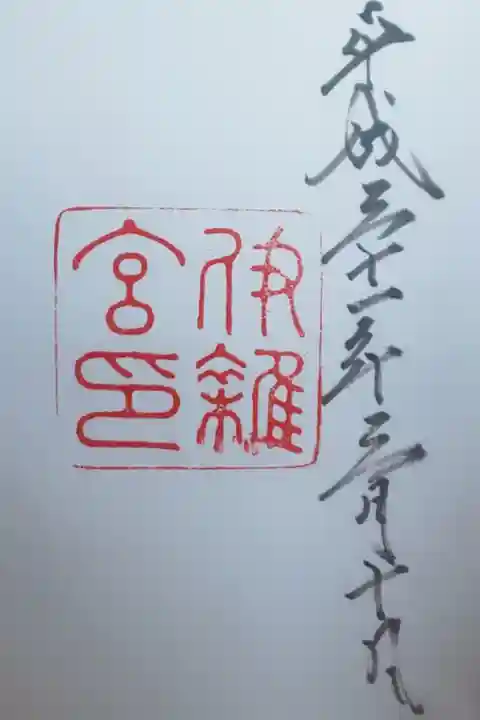 平成三十一年三月十九
伊雜
宮印